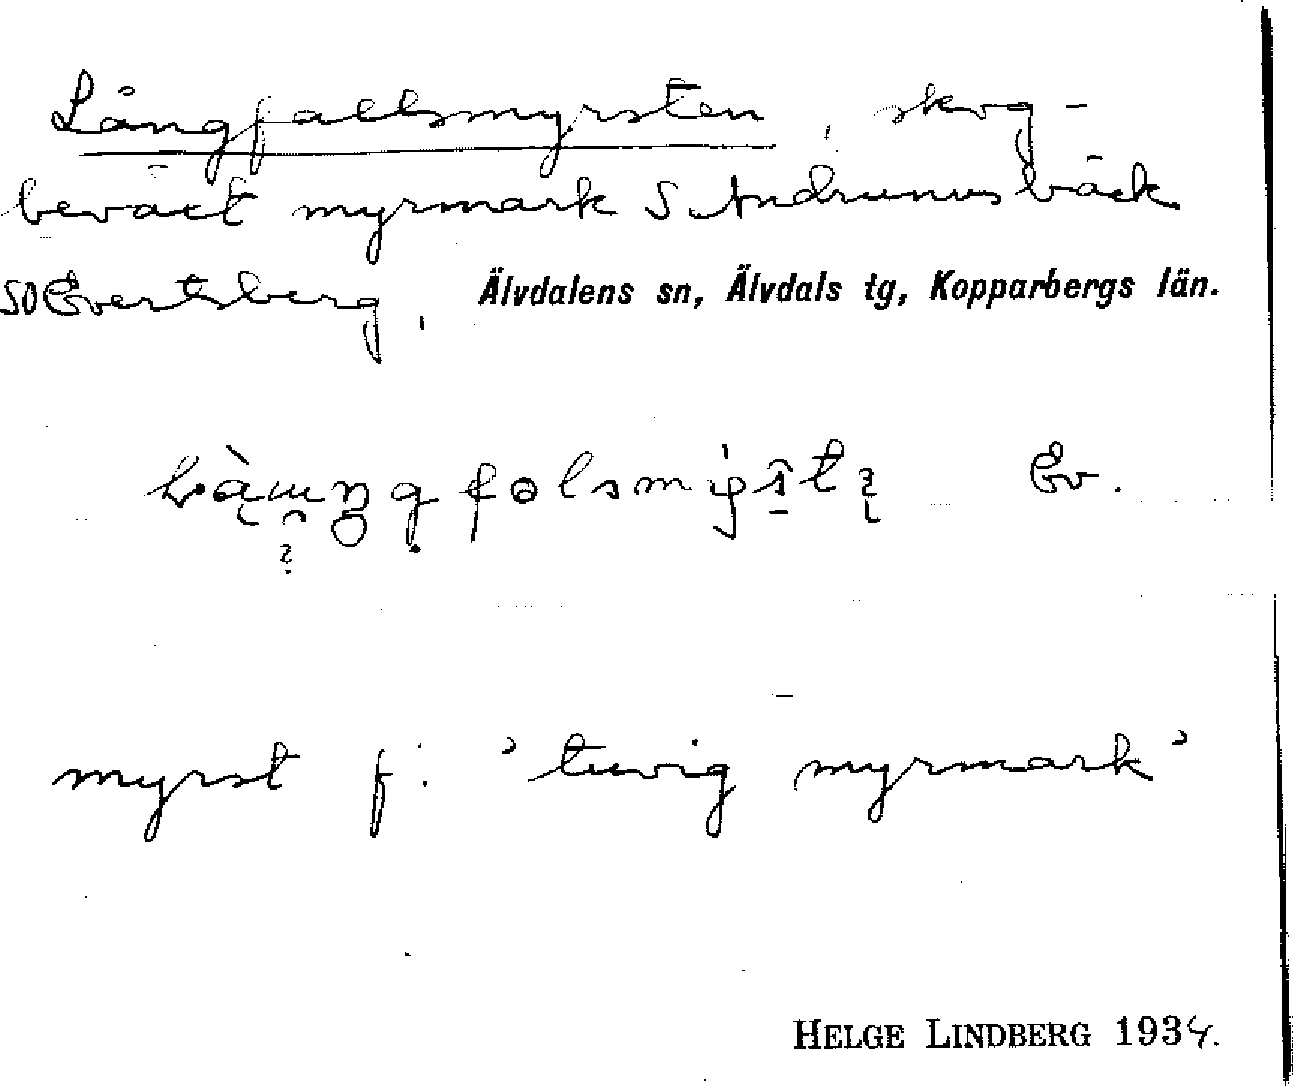 Långfallsmyrsten, skog-
beväxt myrmark S. Andrunusbäck
SO Evertsberg, Älvdalens sn, Älvdals tg, Kopparbergs län.
Ev.
myrst f. : 'tuvig myrmark'
HELGE LINDBERG 1934.